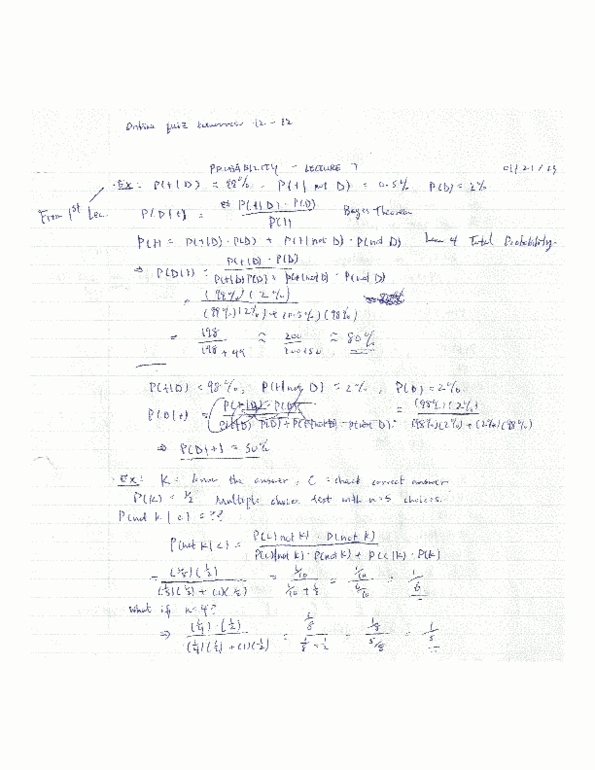 Online quiz tomorrow 12 - 12
PROBABILITY - LECTURE 7
01/21/29
Ex: P(+|D) = 99%, P(+|not D) = 0.5% P(D) = 2%
From 1st Lec. P(D|+) = P(+|D) · P(D) / P(+) Bayes Theorem
P(+) = P(+|D) · P(D) + P(+|not D) · P(not D) Lec 4 Total Probability
⇒ P(D|+) = P(+|D) · P(D) / P(+|D) P(D) + P(+|not D) · P(not D)
= (99%)(2%) / (99%)(2%) + (0.5%)(98%)
= 198 / 198 + 49 ≈ 200 / 200+50 ≈ 80%
P(+|D) = 98%, P(+|not D) = 2%, P(D) = 2%
P(D|+) = = (98%)(2%) / (98%)(2%) + (2%)(98%)
⇒ P(D|+) = 50%
Ex: K = know the answer, C = check correct answer
P(K) = 1/2 Multiple choice test with n=5 choices.
P(not K | C) = ??
P(not K | C) = P(C|not K) · P(not K) / P(C|not K) · P(not K) + P(C|K) · P(K)
= (1/5)(1/2) / (1/5)(1/2) + (1)(1/2) = 1/10 / 1/10 + 1/2 = 1/10 / 6/10 = 1/6
What if n=4?
⇒ (1/4) · (1/2) / (1/4)(1/2) + (1)(1/2) = 1/8 / 1/8 + 1/2 = 1/8 / 5/8 = 1/5